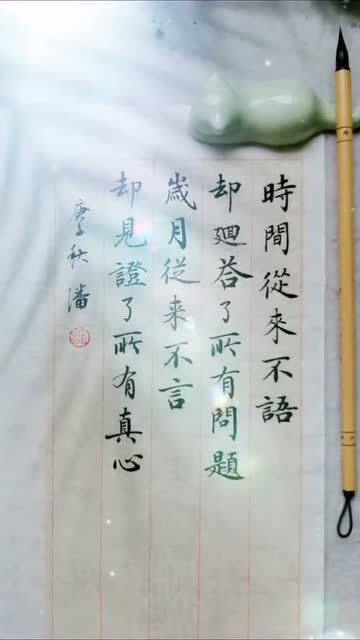 時間從來不語
却廻答了所有問題
歲月從来不言
却見證了所有真心
秋潘